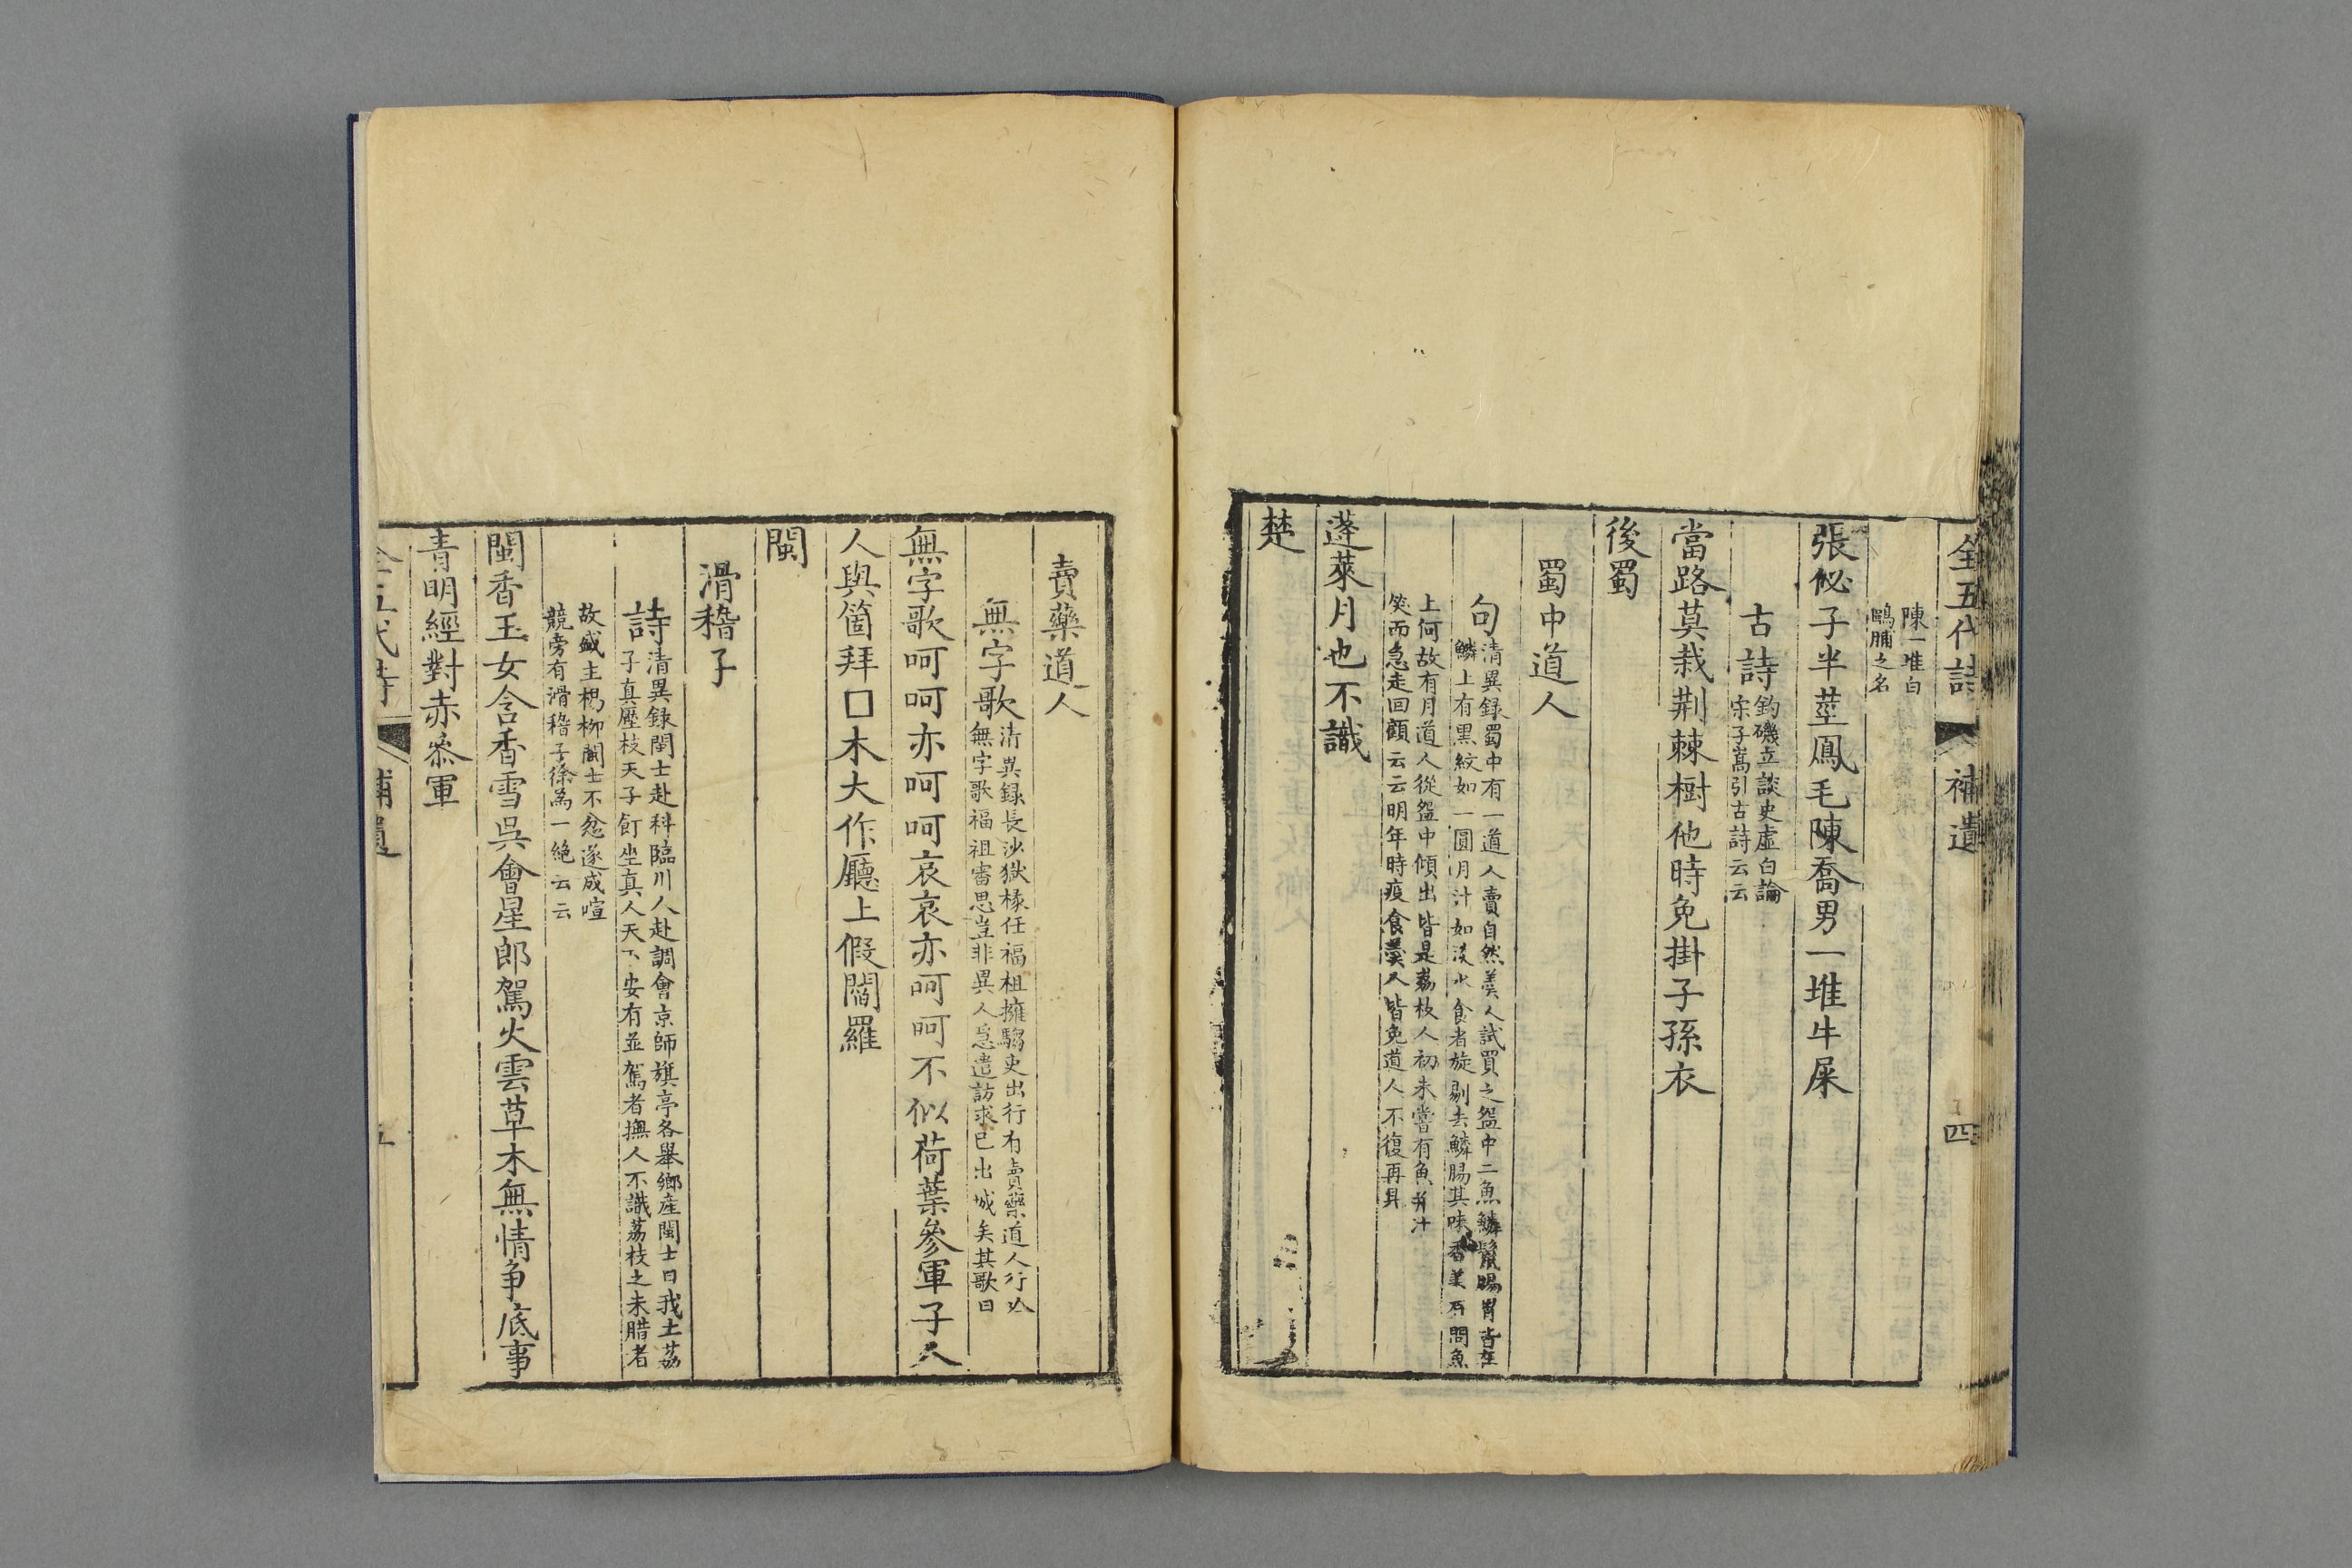 全五代詩 補遺 四
陳一堆白
鷗脯之名
張佖子半莖鳳毛陳喬男一堆牛屎
古詩
釣磯立談史虛白論
宋子嵩引古詩云云
當路莫栽荆棘樹他時免掛子孫衣
後蜀
蜀中道人
句
清異録蜀中有一道人賣自然羮人試買之盌中二魚鱗鬣腸胃皆在
鱗上有黑紋如一圓月汁如淡水食者旋剔去鱗腸其味香美有問魚
上何故有月道人從盌中傾出皆是荔枝人初未嘗有魚并汁
笑而急走回顧云云明年時疫食羮人皆免道人不復再見
蓬萊月也不識
楚
賣藥道人
無字歌
清異録長沙獄椽任福祖擁騶吏出行有賣藥道人行必
無字歌福祖審思豈非異人急遣訪求已出城矣其歌曰
無字歌呵呵亦呵呵哀哀亦呵呵不似荷葉參軍子人
人與箇拜口木大作廳上假閻羅
閩
滑稽子
詩
清異録閩士赴科臨川人赴調會京師旗亭各舉鄉產閩士曰我土荔
子真壓枝天子飣坐真人天下安有並駕者撫人不識荔枝之未腊者
故盛主楊柳閩士不忿遂成喧
競旁有滑稽子徐為一絶云云
閩香玉女含香雪吳會星郎駕火雲草木無情争底事
青明經對赤叅軍
全五代詩 補遺